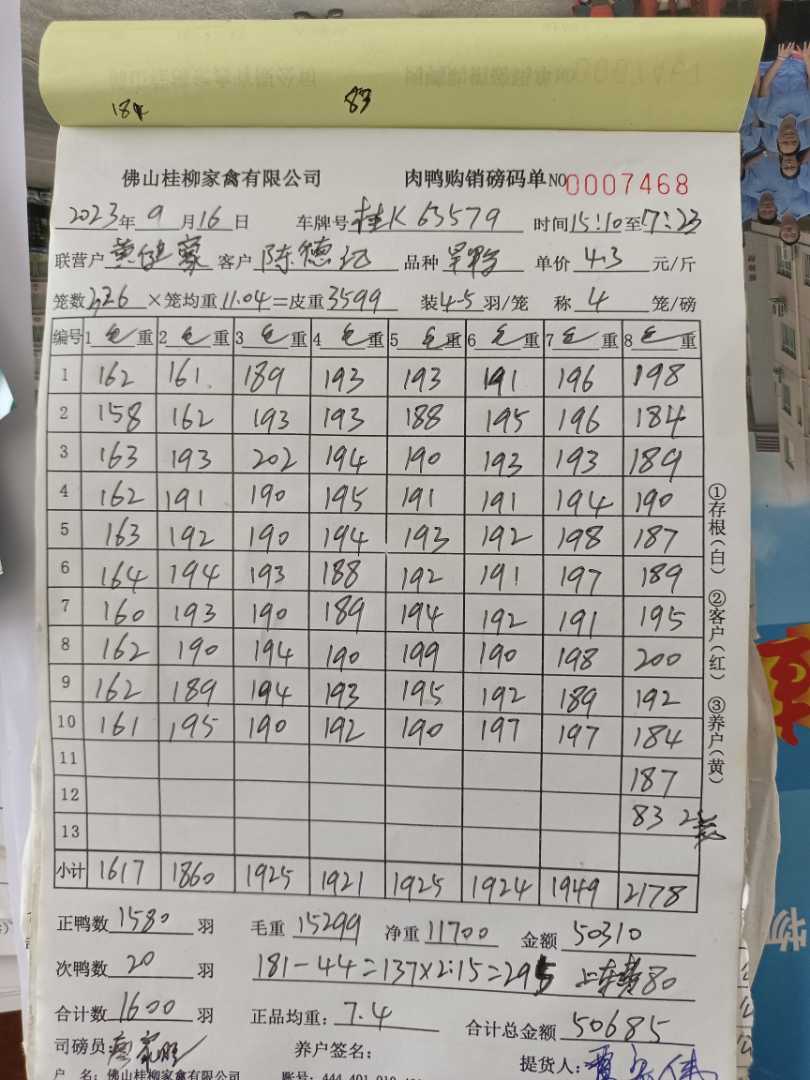 184 83
佛山桂柳家禽有限公司 肉鸭购销磅码单 NO 0007468
2023年 9 月 16 日 车牌号 桂K 63579 时间 15:10 至 17:23
联营户 黄 客户 陈德记 品种 单价 4.3 元/斤
笼数 326 ×笼均重 11.04 =皮重 3599 装 4-5 羽/笼 称 4 笼/磅
编号 1 毛 重 2 毛 重 3 毛 重 4 毛 重 5 毛 重 6 毛 重 7 毛 重 8 毛 重
1 162 161 189 193 193 191 196 198
2 158 162 193 193 188 195 196 184
3 163 193 202 194 190 193 193 189
4 162 191 190 195 191 191 194 190
5 163 192 190 194 193 192 198 187
6 164 194 193 188 192 191 197 189
7 160 193 190 189 194 192 191 195
8 162 190 194 190 199 190 198 200
9 162 189 194 193 195 192 189 192
10 161 195 190 192 190 197 197 184
11 187
12 83 2笼
13
小计 1617 1860 1925 1921 1925 1924 1949 2178
①存根(白) ②客户(红) ③养户(黄)
正鸭数 1580 羽 毛重 15299 净重 11700 金额 50310
次鸭数 20 羽 181-44=137×2.15=295 上车费80
合计数 1600 羽 正品均重: 7.4 合计总金额 50685
司磅员: 养户签名: 提货人:
户 名: 佛山桂柳家禽有限公司 账号: